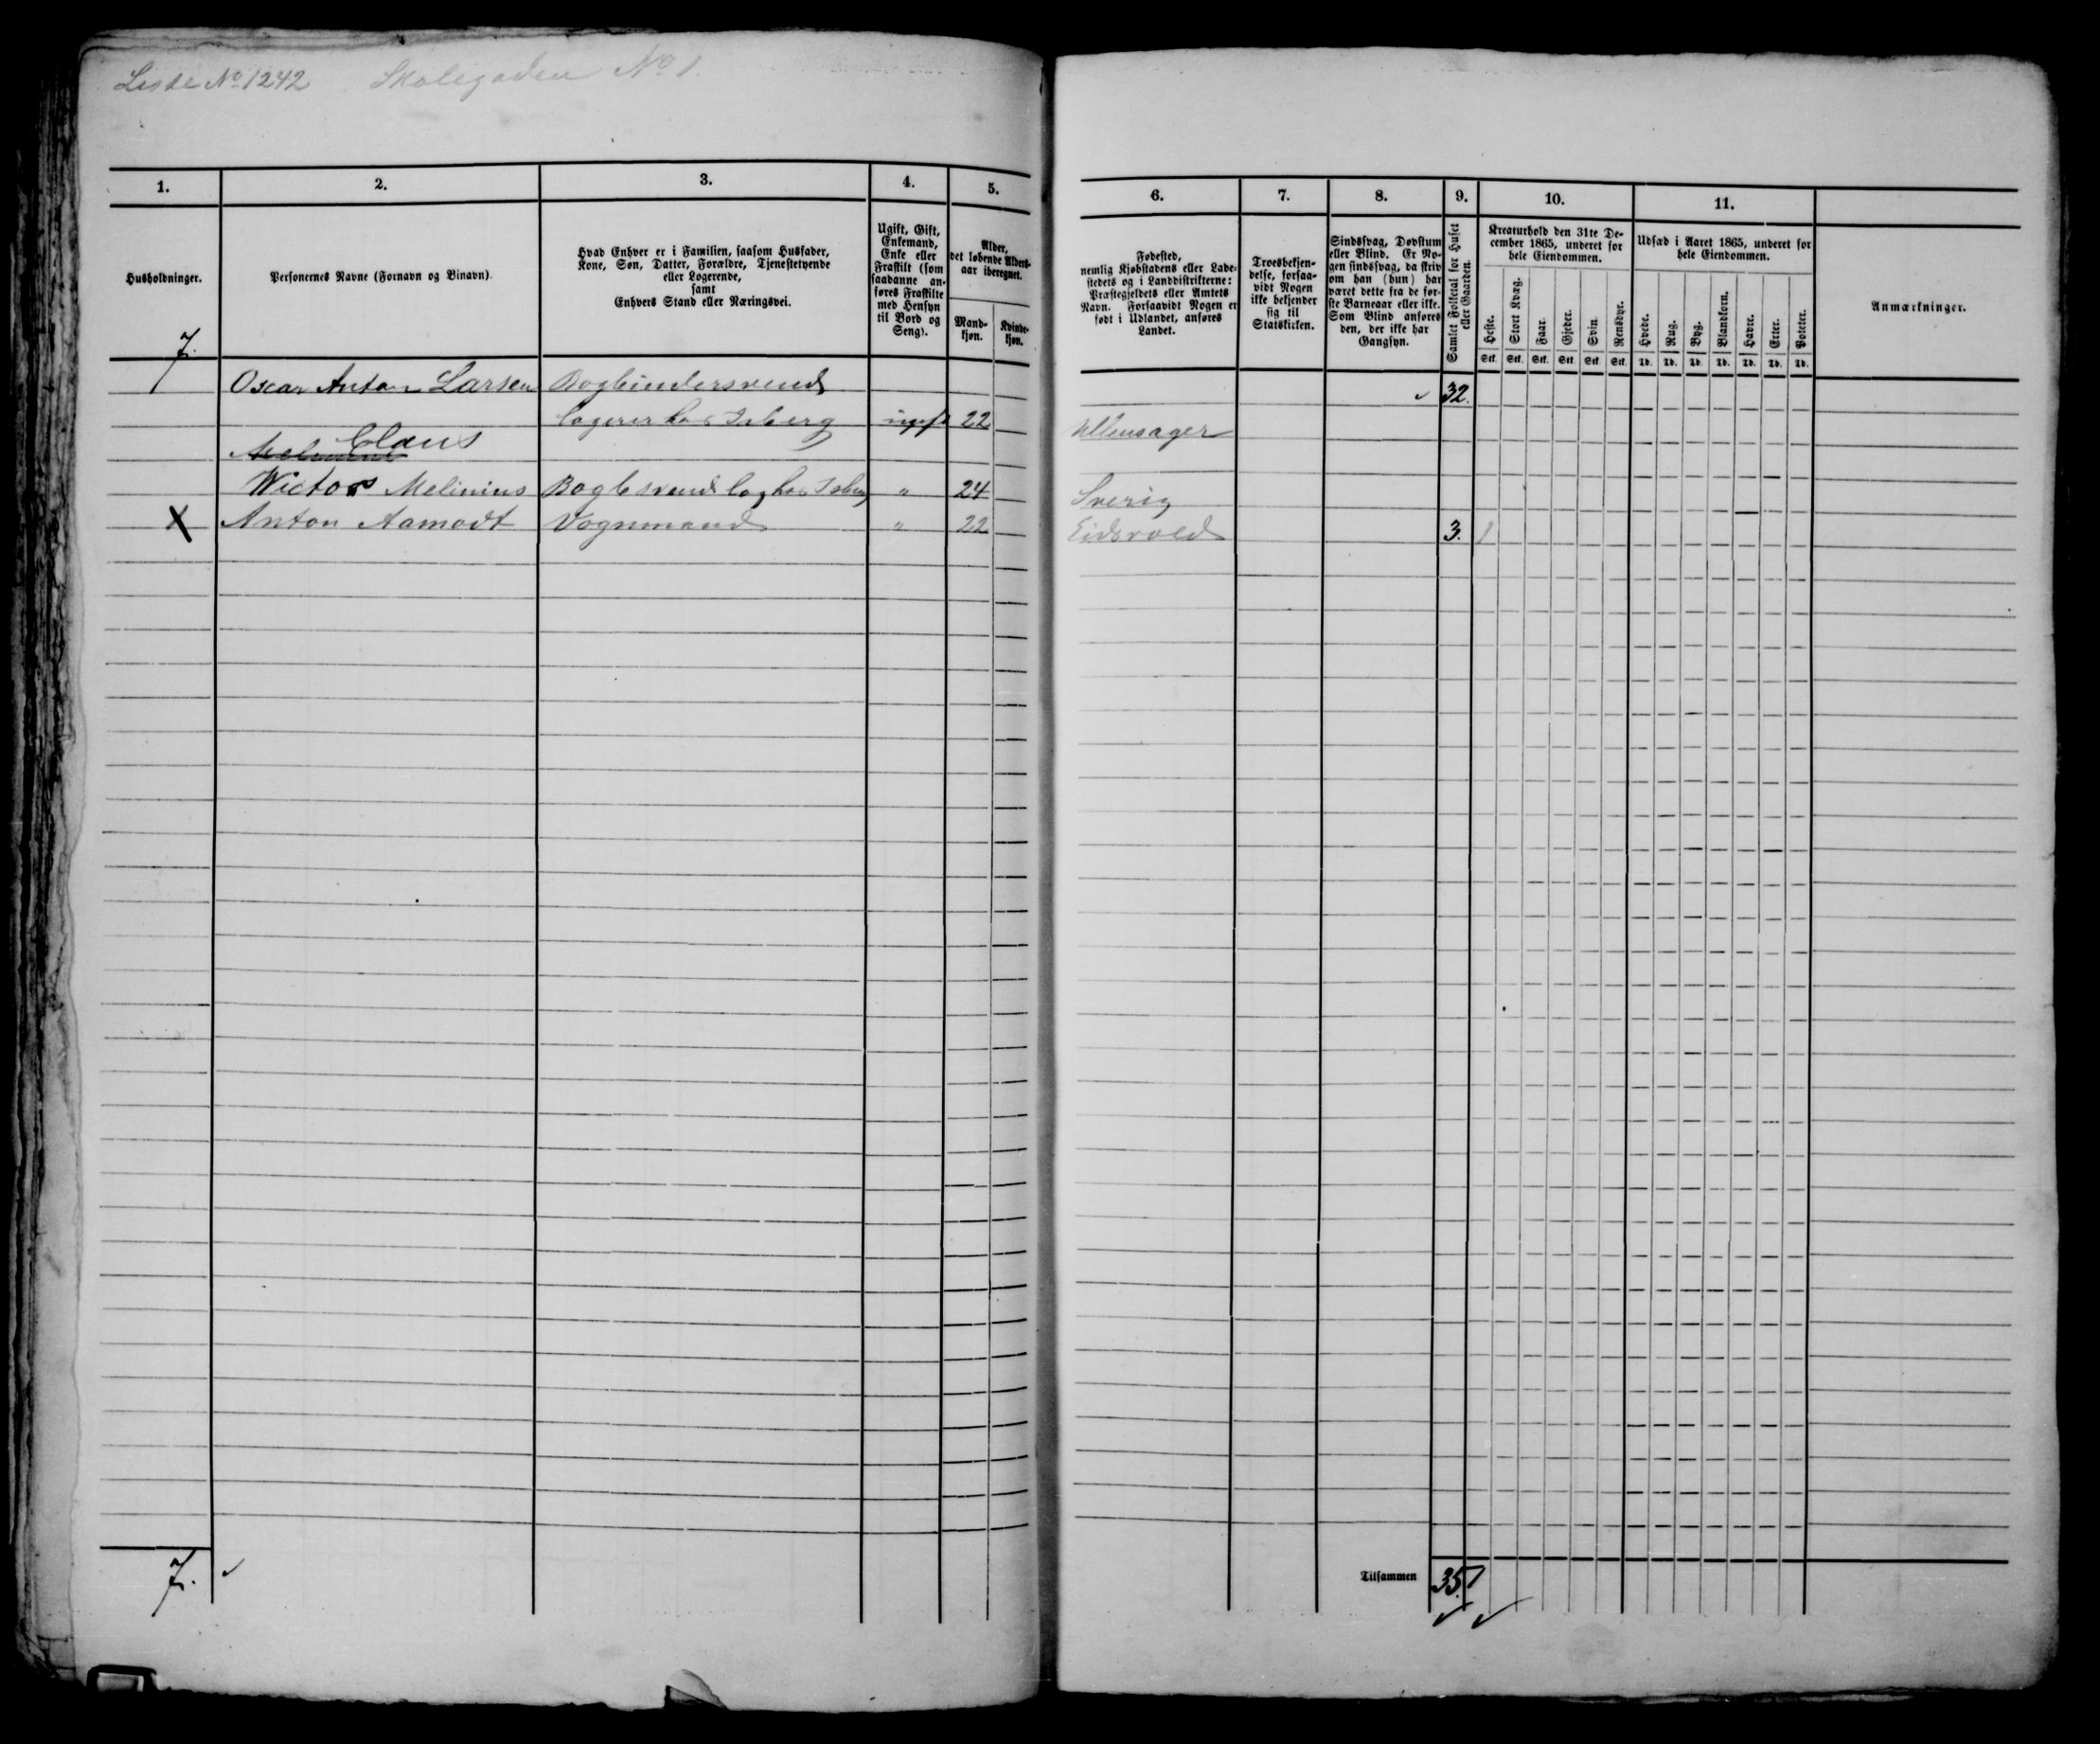 Liste No 1242 Skolegaden No 1.
1. 2. 3. 4. 5. 6. 7. 8. 9. 10. 11.
Husholdninger.
Personernes Navne (Fornavn og Binavn).
Hvad Enhver er i Familien, saasom Husfader,
Kone, Søn, Datter, Forældre, Tjenestetyende
eller Logerende,
samt
Enhvers Stand eller Næringsvei.
Ugift, Gift,
Enkemand,
Enke eller
Fraskilt (som
saadanne an-
føres Fraskilte
med Hensyn
til Bord og
Seng).
Alder,
det løbende Alders-
aar iberegnet.
Mand-
kjøn.
Kvinde-
kjøn.
Fødested,
nemlig Kjøbstadens eller Lade-
stedets og i Landdistrikterne:
Præstegjeldets eller Amtets
Navn. Forsaavidt Nogen er
født i Udlandet, anføres
Landet.
Troesbekjen-
delse, forsaa-
vidt Nogen
ikke bekjender
sig til
Statskirken.
Sindssvag, Døvstum
eller Blind. Er No-
gen sindssvag, da skriv
om han (hun) har
været dette fra de før-
ste Barneaar eller ikke.
Som Blind anføres
den, der ikke har
Gangsyn.
Samlet Folketal for Huset
eller Gaarden.
Kreaturhold den 31te De-
cember 1865, underet for
hele Eiendommen.
Heste. Stort Kvæg. Faar. Gjeder. Svin. Rensdyr.
Stk. Stk. Stk. Stk. Stk. Stk.
Udsæd i Aaret 1865, underet for
hele Eiendommen.
Hvede. Rug. Byg. Blandkorn. Havre. Erter. Poteter.
Td. Td. Td. Td. Td. Td. Td.
Anmærkninger.
7.
Oscar Anton Larsen Bogbindersvend 32.
logerer hos Isberg ugift 22 Ullensager
Claus
Wictor Melinius Bogb svend log hos Isberg " 24 Sverig
X Anton Aamodt Vognmand " 22 Eidsvold 3. 1
7. Tilsammen 35. 1